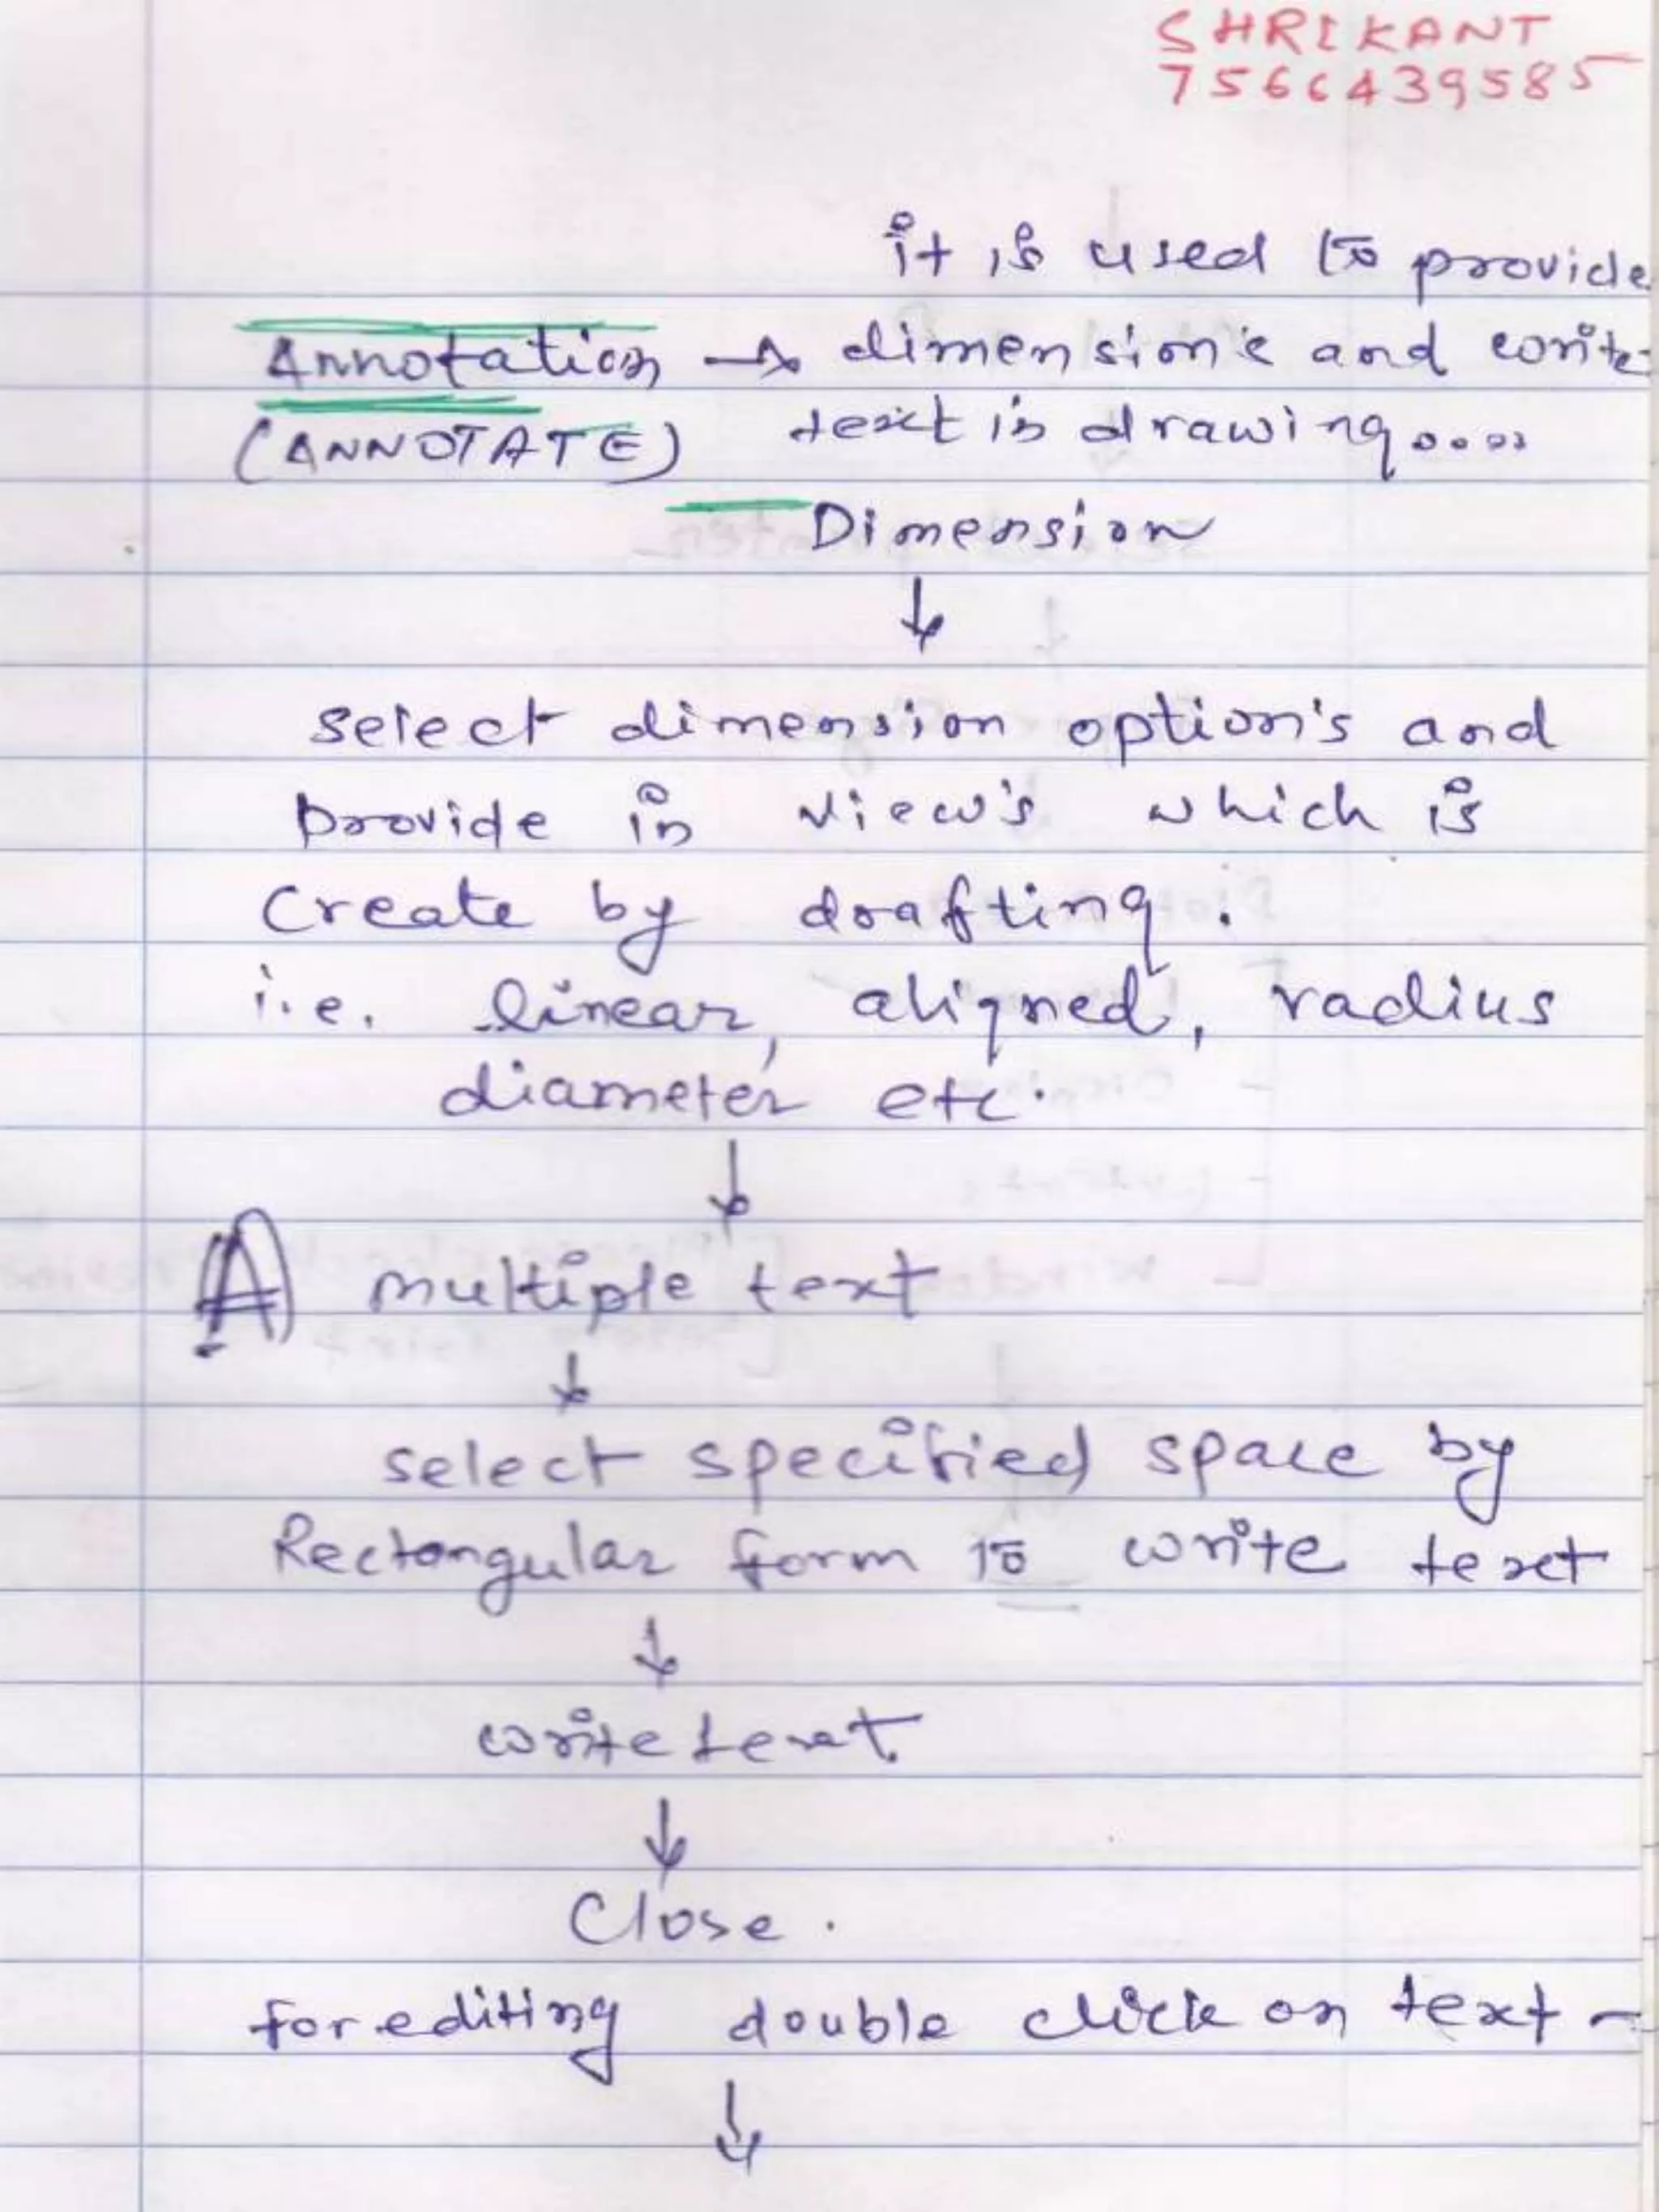 SHRIKANT
7566439585
it is used to provide
Annotation → dimension's and write
(ANNOTATE) text in drawing....
Dimension
↓
select dimension option's and
provide in view's which is
Create by drafting.
i.e. linear, aligned, radius
diameter etc.
↓
A multiple text
↓
select specified space by
Rectangular form to write text
↓
write text.
↓
Close.
for editing double click on text -
↓